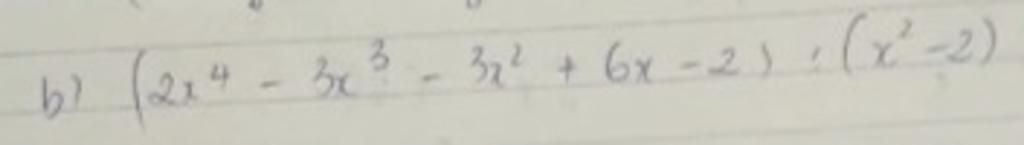 b) (2x⁴ - 3x³ - 3x² + 6x - 2) : (x² - 2)